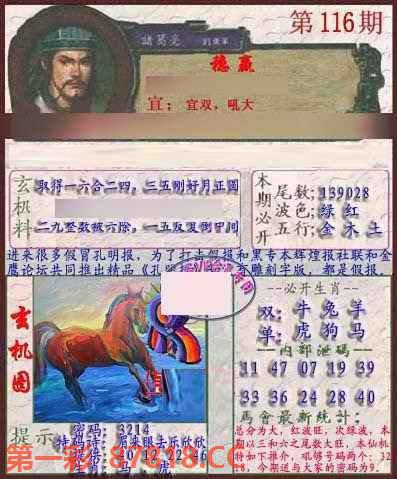 第116期
諸葛亮
劉軍軍
稳赢
宣：宜双，吼大
玄机料
取得一六合二四，三五刚好月正圆
二九整数被六除，一五反复倒中间
本期必开
尾数;139028
波色;绿 红
五行;金 木 土
进来很多假冒孔明报，为了打击假报和黑专本辉煌报社联和金
鹰论坛共同推出精品《孔
雕刻字版，都是假报。
玄机图
必开生肖
双:牛 兔 羊
单:虎 狗 马
内部泄码
11 47 07 19 39 49
33 36 24 28 40
馬會最新統計:
总分为大，红波旺，次绿波，本
期以三和六之尾数大旺，本仙机
28，今期送与大家的密码为9.
提示
密码: 3214
特码诗: 眉来眼去乐欣欣
10 12 22 46
马 虎
第一彩：87818.CC